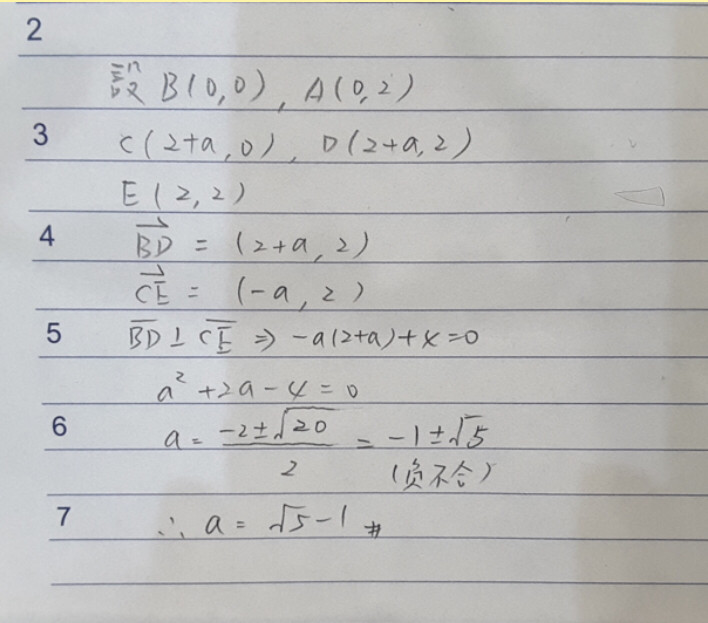 2
設 B(0,0), A(0,2)
3 C(2+a,0), D(2+a,2)
E(2,2)
4 \overrightarrow{BD} = (2+a, 2)
\overrightarrow{CE} = (-a, 2)
5 \overline{BD} ⊥ \overline{CE} ⇒ -a(2+a)+4=0
a²+2a-4=0
6 a = \frac{-2±√20}{2} = -1±√5
(负不合)
7 ∴ a = √5-1 #